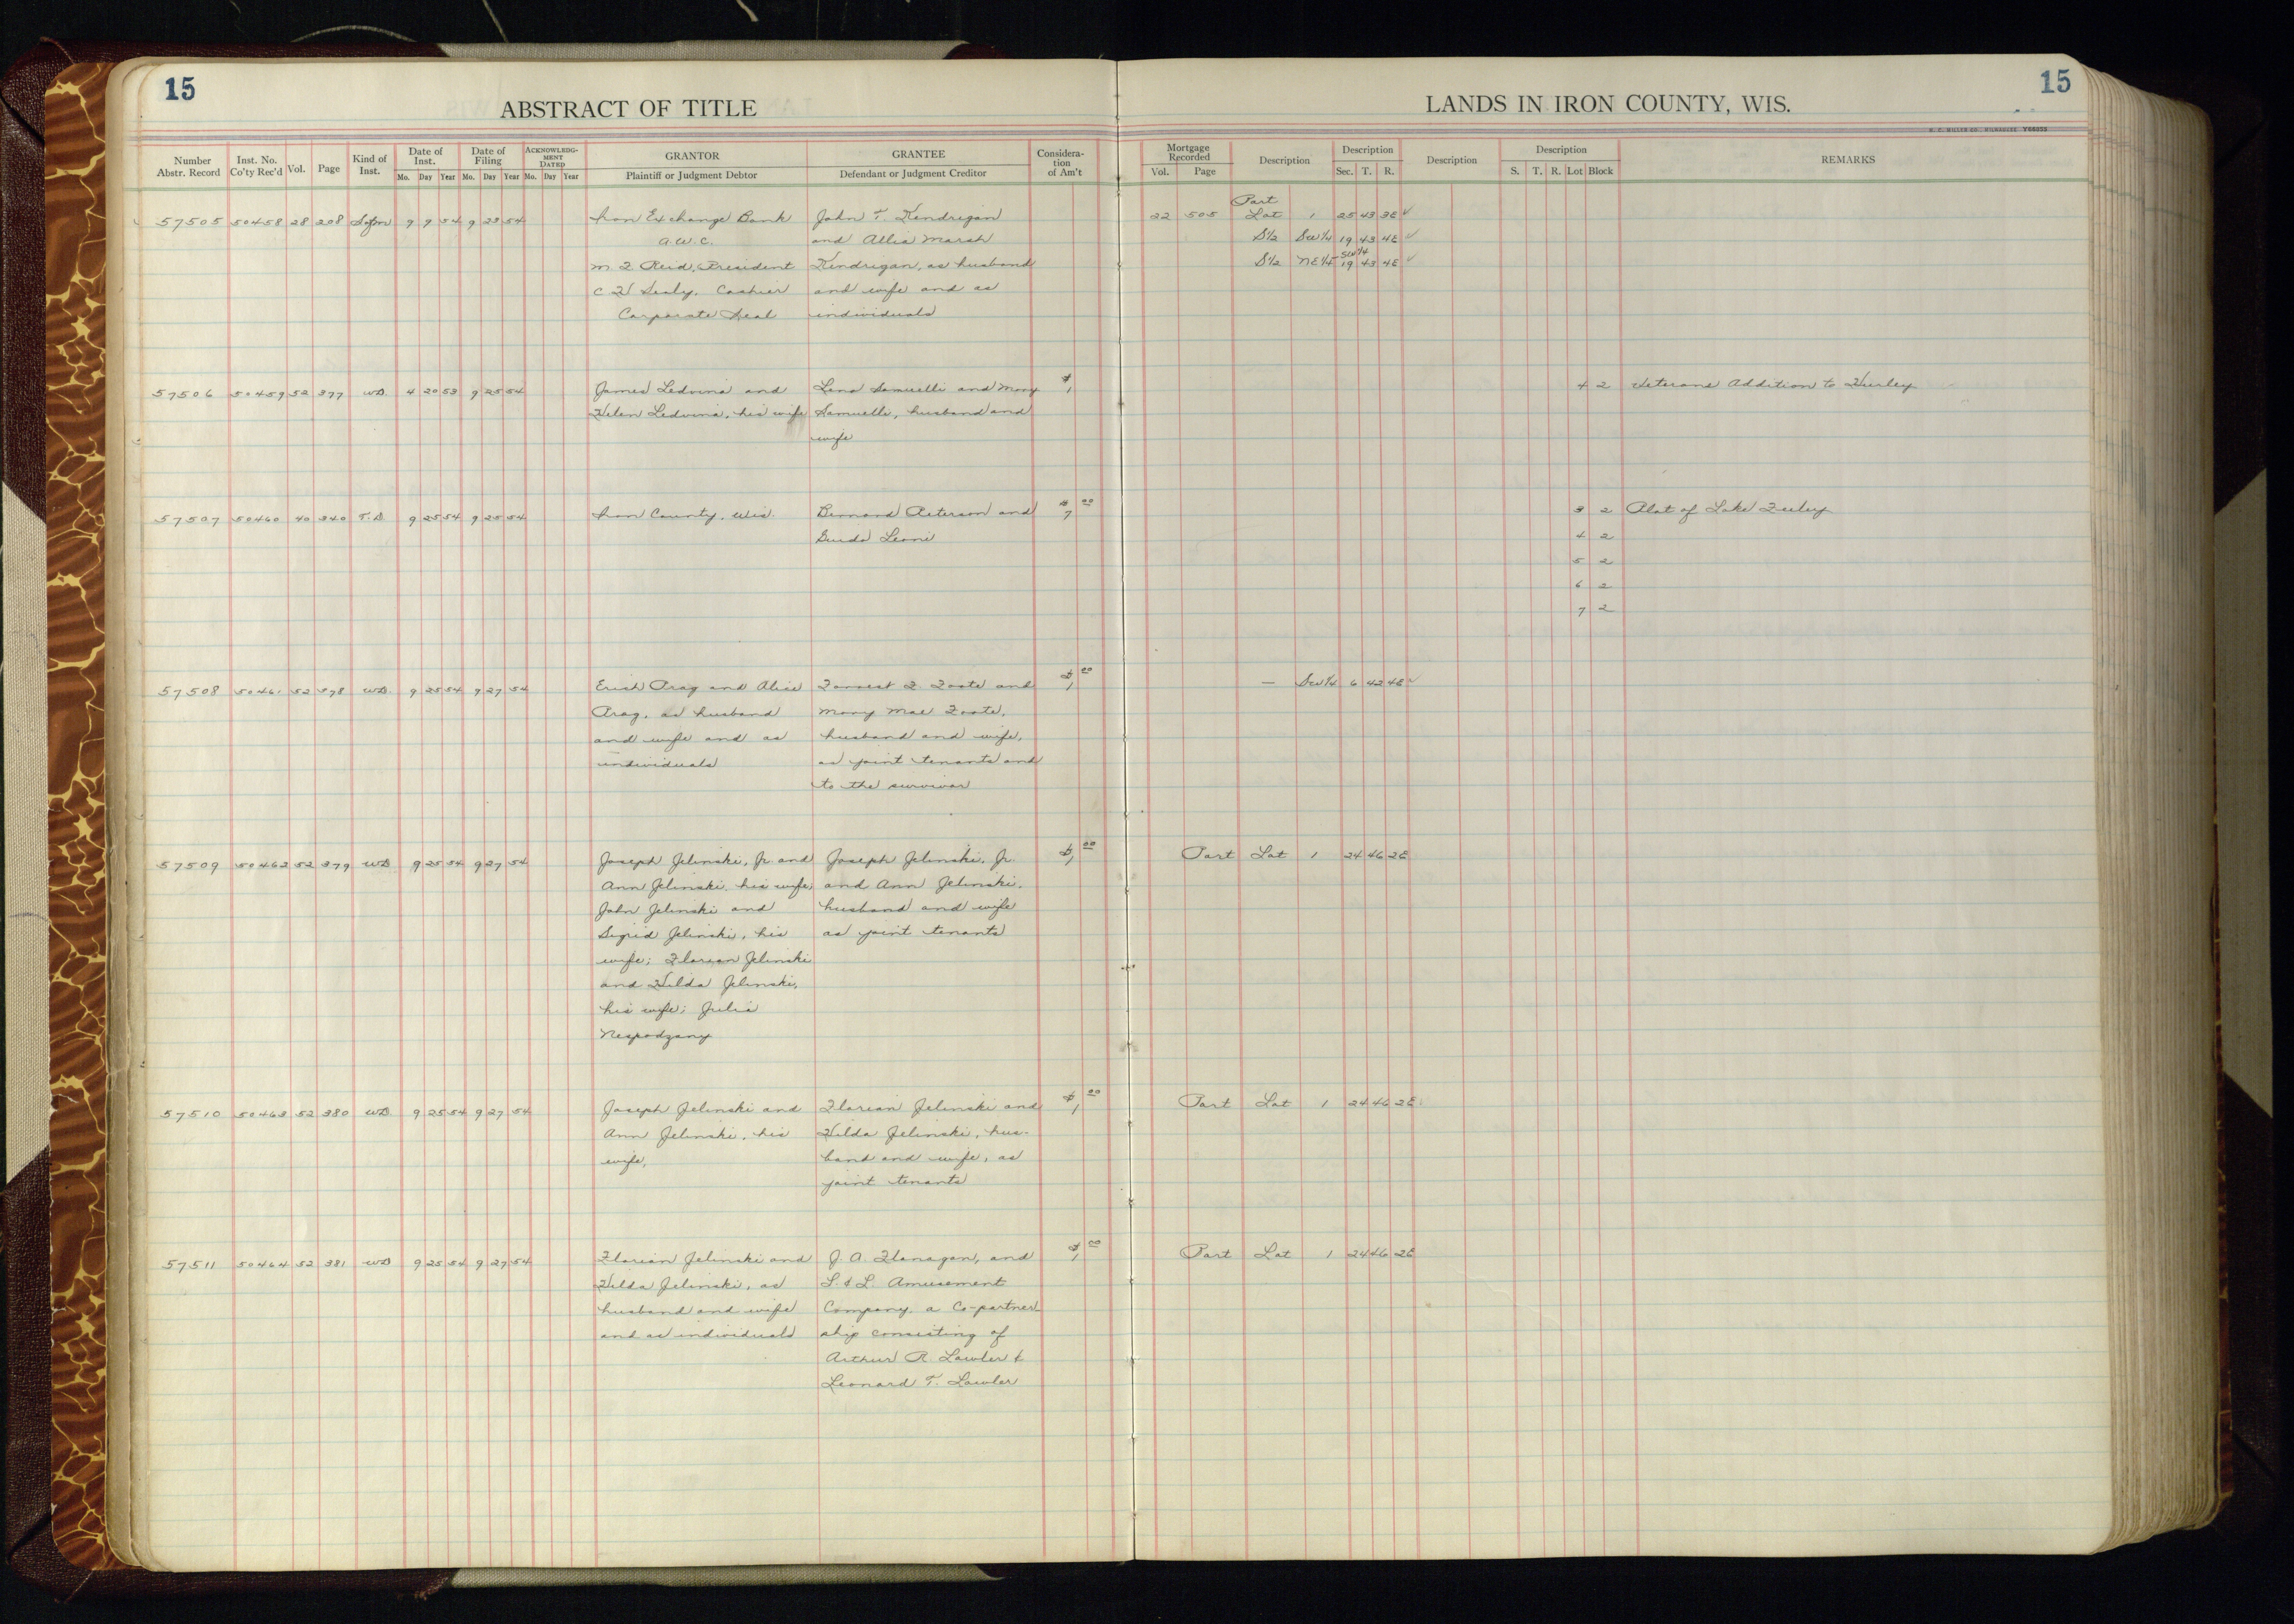 15
ABSTRACT OF TITLE
LANDS IN IRON COUNTY, WIS.
15
Number Abstr. Record Inst. No. Co'ty Rec'd Vol. Page Kind of Inst. Date of Inst. Mo. Day Year Date of Filing Mo. Day Year ACKNOWLEDGMENT DATED Mo. Day Year GRANTOR Plaintiff or Judgment Debtor GRANTEE Defendant or Judgment Creditor Considera-tion of Am't
Mortgage Recorded Vol. Page Description Description Sec. T. R. Description Description S. T. R. Lot Block REMARKS
Part
57505 50458 28 208 9 9 54 9 23 54 Iron Exchange Bank John T. Kendrigan 22 505 Lot 1 25 43 3E ✓
A.W.C. and Allie Marsh S½ SW¼ 19 43 4E ✓
President Kendrigan, as husband S½ NE¼ SW¼ 19 43 4E ✓
Cashier and wife and as
Corporate Seal individuals
57506 50459 52 377 WD. 4 20 53 9 25 54 James Ledvina and Leno Samuelli and Mary $1 4 2 Veterans Addition to Hurley
Helen Ledvina, his wife Samuelli, husband and
wife
57507 50460 40 340 T.D. 9 25 54 9 25 54 Iron County, Wis. Bernard Peterson and $7 00 3 2 Plat of Lake
Guido Leoni 4 2
5 2
6 2
7 2
57508 50461 52 378 WD. 9 25 54 9 27 54 Erich Prag and Alice Forrest F. Foote and $1 00 — SW¼ 6 42 4E ✓
Prag, as husband Mary Mae Foote,
and wife and as husband and wife,
individuals as joint tenants and
to the survivor
57509 50462 52 379 WD 9 25 54 9 27 54 Joseph Jelinski, Jr. and Joseph Jelinski, Jr. $1 00 Part Lot 1 24 46 2E
Ann Jelinski, his wife; and Ann Jelinski,
John Jelinski and husband and wife
Sigrid Jelinski, his as joint tenants
wife; Florian Jelinski
and Hilda Jelinski,
his wife; Julia
Nespodzany
57510 50463 52 380 WD 9 25 54 9 27 54 Joseph Jelinski and Florian Jelinski and $1 00 Part Lot 1 24 46 2E
Ann Jelinski, his Hilda Jelinski, hus-
wife, band and wife, as
joint tenants
57511 50464 52 381 WD 9 25 54 9 27 54 Florian Jelinski and J. A. Flanagan, and $1 00 Part Lot 1 24 46 2E
Hilda Jelinski, as L. & L. Amusement
husband and wife Company, a Co-partner-
and as individuals ship consisting of
Arthur R. Lawler &
Leonard T. Lawler